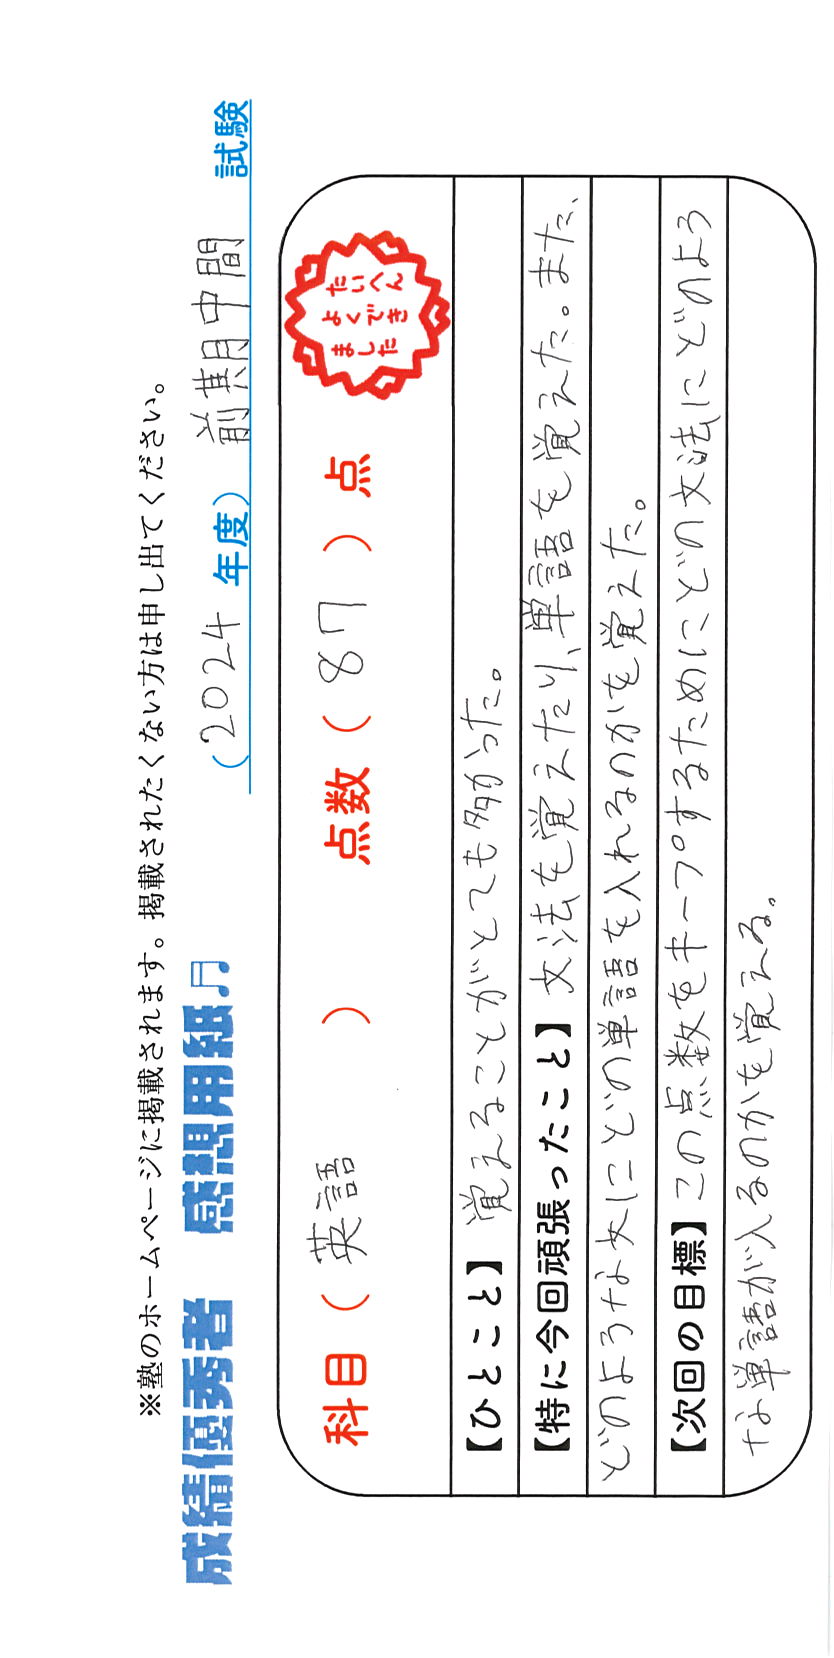 ※塾のホームページに掲載されます。掲載されたくない方は申し出てください。
成績優秀者 感想用紙♫ (2024年度) 前期中間 試験
科目 ( 英語 ) 点数 ( 87 ) 点
たいへん
よくでき
ました
【ひとこと】覚えることがとても多かった。
【特に今回頑張ったこと】文法を覚えたり、単語を覚えた。また、
どのような文にどの単語を入れるのかを覚えた。
【次回の目標】この点数をキープするためにどの文法にどのよう
な単語が入るのかを覚える。